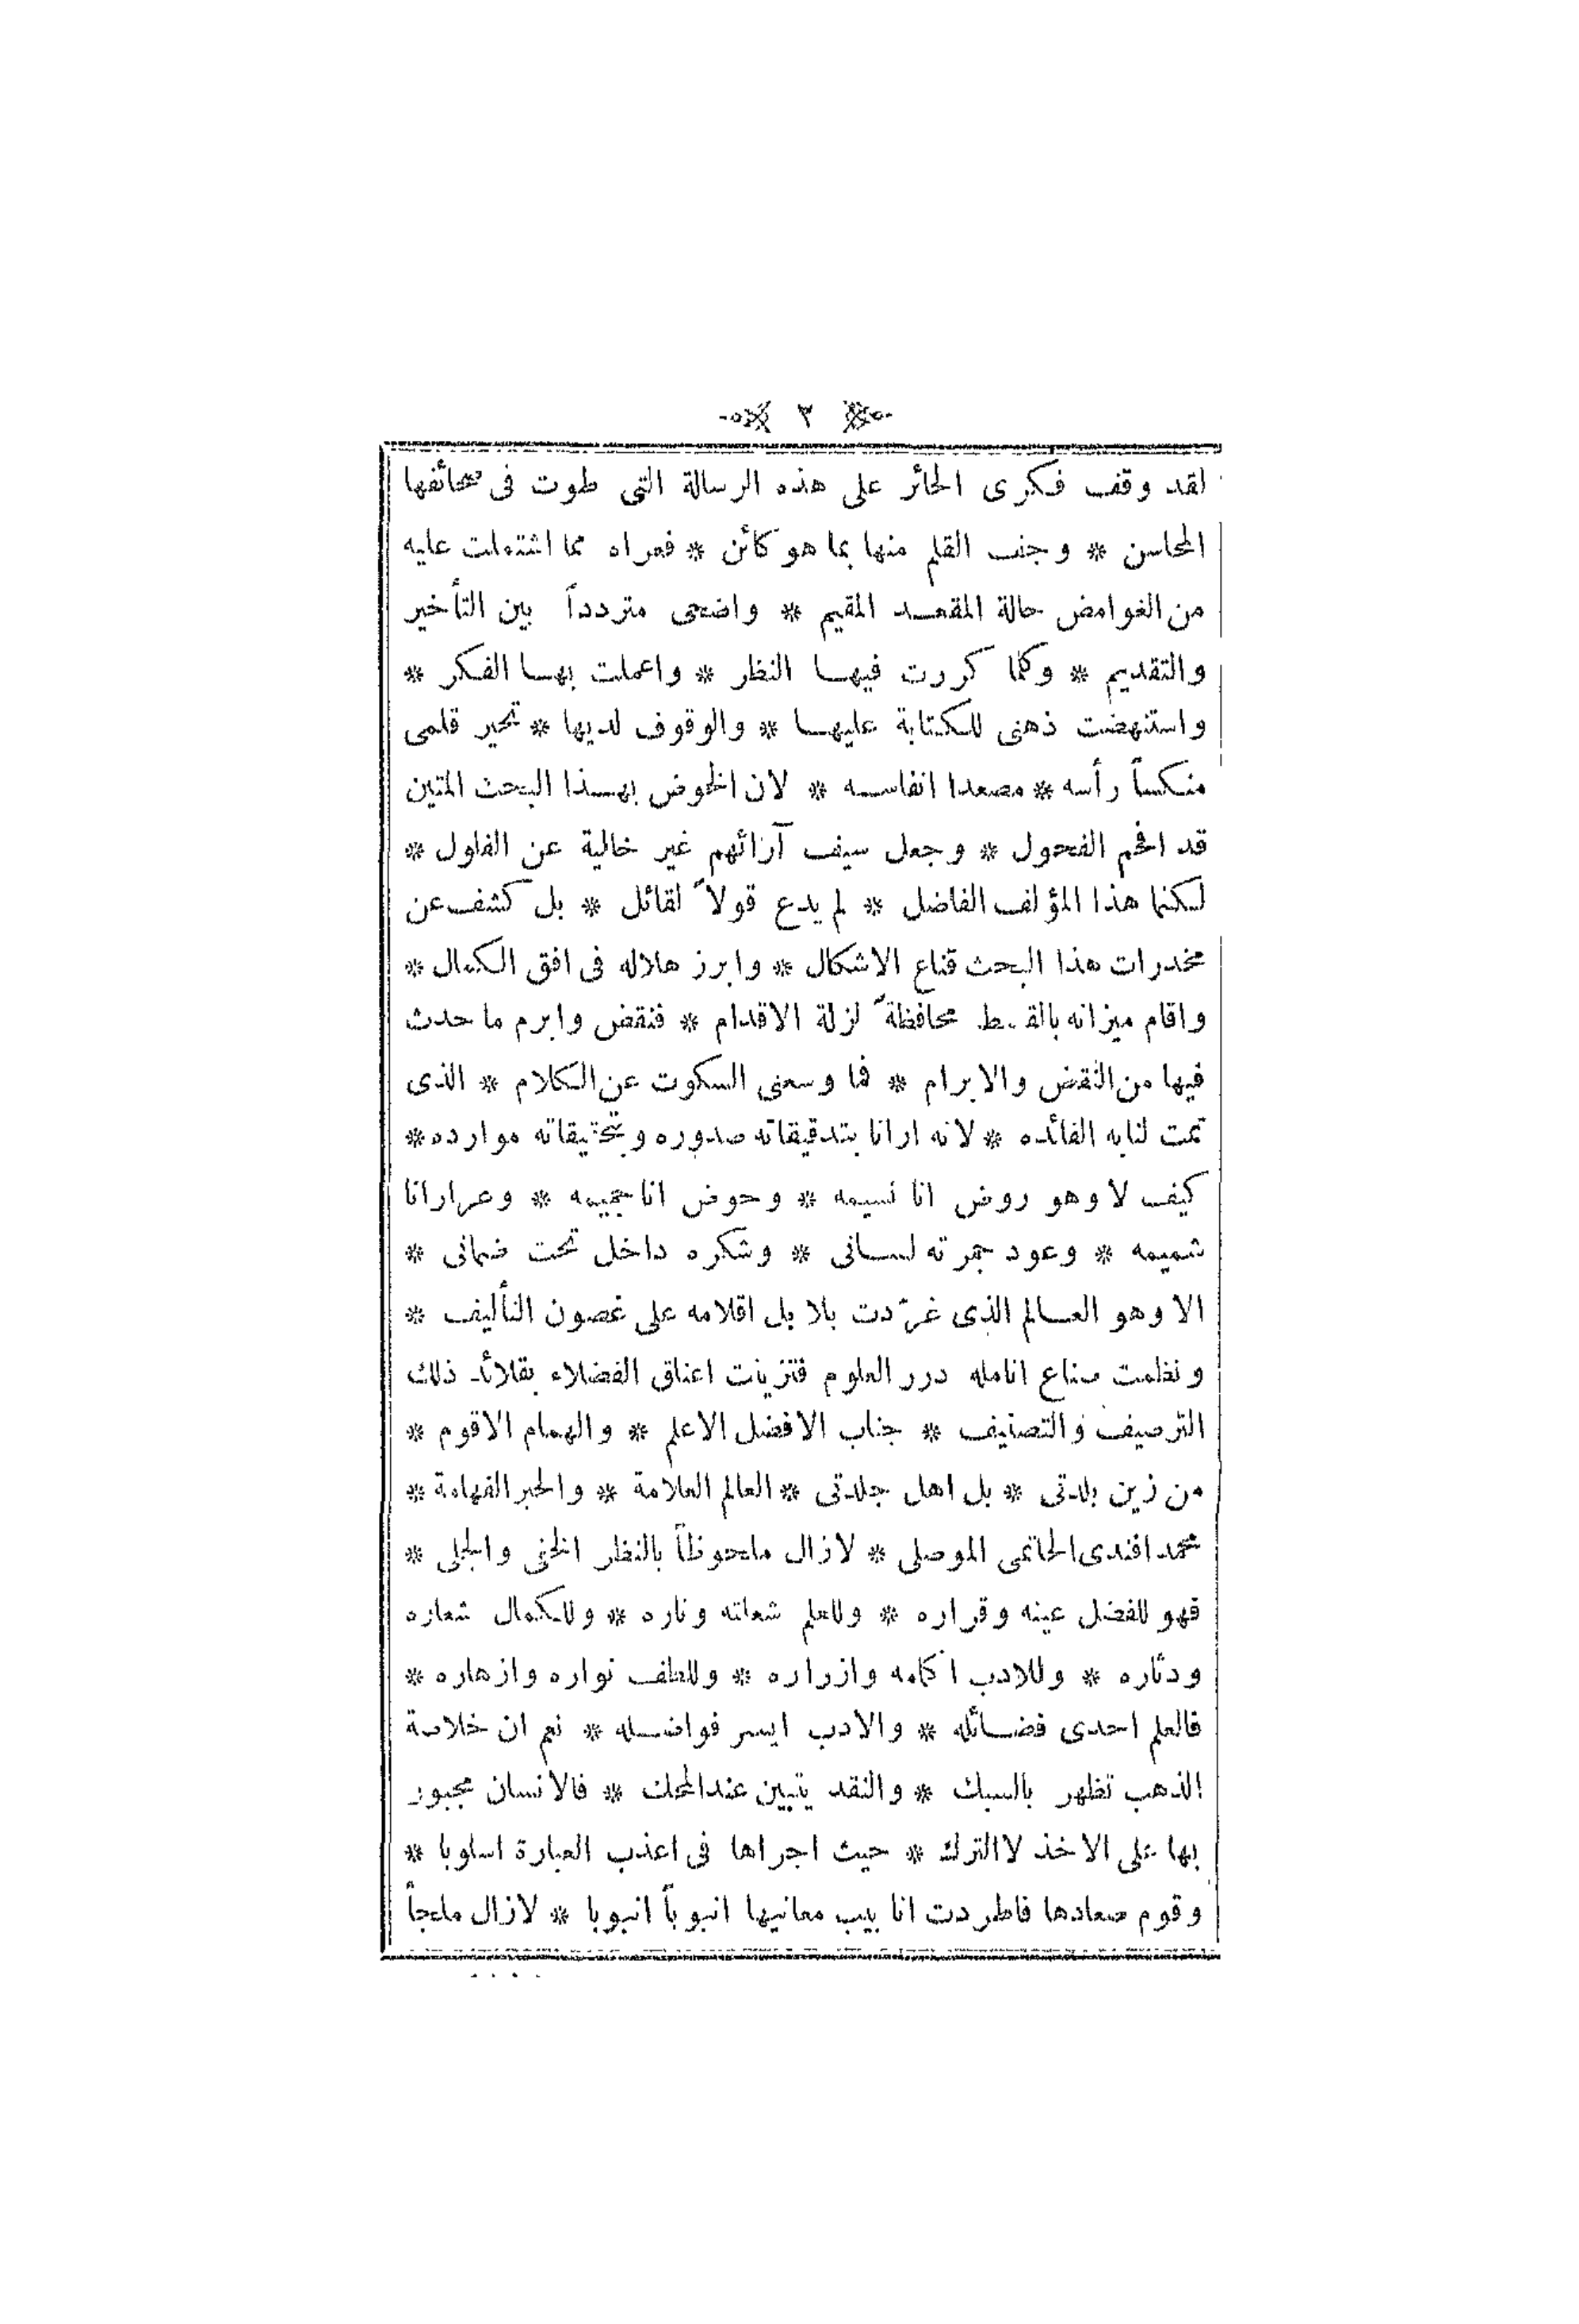 ٣
لقد وقف فكرى الحائر على هذه الرسالة التى طوت فى صحائفها
المحاسن * وجف القلم منها بما هو كائن * فعراه مما اشتملت عليه
من الغوامض حالة المقعد المقيم * واضحى متردداً بين التأخير
والتقديم * وكلما كررت فيها النظر * واعملت بها الفكر *
واستنهضت ذهنى للكتابة عليها * والوقوف لديها * تحير قلمى
منكساً رأسه * مصعدا انفاسه * لان الخوض بهذا البحث المتين
قد افحم الفحول * وجعل سيف آرائهم غير خالية عن الفلول *
لكنما هذا المؤلف الفاضل * لم يدع قولاً لقائل * بل كشف عن
مخدرات هذا البحث قناع الاشكال * وابرز هلاله فى افق الكمال *
واقام ميزانه بالقسط محافظةً لزلة الاقدام * فنقض وابرم ما حدث
فيها من النقض والابرام * فما وسعنى السكوت عن الكلام * الذى
تمت لنا به الفائده * لانه ارانا بتدقيقاته صدوره وبتحقيقاته موارده *
كيف لا وهو روض انا نسيمه * وحوض انا جميمه * وعرار انا
شميمه * وعود جمرته لسانى * وشكره داخل تحت ضمانى *
الا وهو العالم الذى غرّدت بلابل اقلامه على غصون التأليف *
ونظمت صناع انامله درر العلوم فتزينت اعناق الفضلاء بقلائد ذلك
الترصيف والتصنيف * جناب الافضل الاعلم * والهمام الاقوم *
من زين بلدتى * بل اهل جلدتى * العالم العلامة * والحبر الفهامة *
محمد افندى الحاتمى الموصلى * لازال ملحوظاً بالنظر الخفى والجلى *
فهو للفضل عينه وقراره * وللعلم شعلته وناره * وللكمال شعاره
ودثاره * وللادب اكمامه وازراره * وللطف نواره وازهاره *
فالعلم احدى فضائله * والادب ايسر فواضله * نعم ان خلاصة
الذهب تظهر بالسبك * والنقد يتبين عند المحك * فالانسان مجبور
بها على الاخذ لا الترك * حيث اجراها فى اعذب العبارة اسلوبا *
وقوم صعادها فاطردت انابيب معانيها انبوباً انبوبا * لازال ملجأ